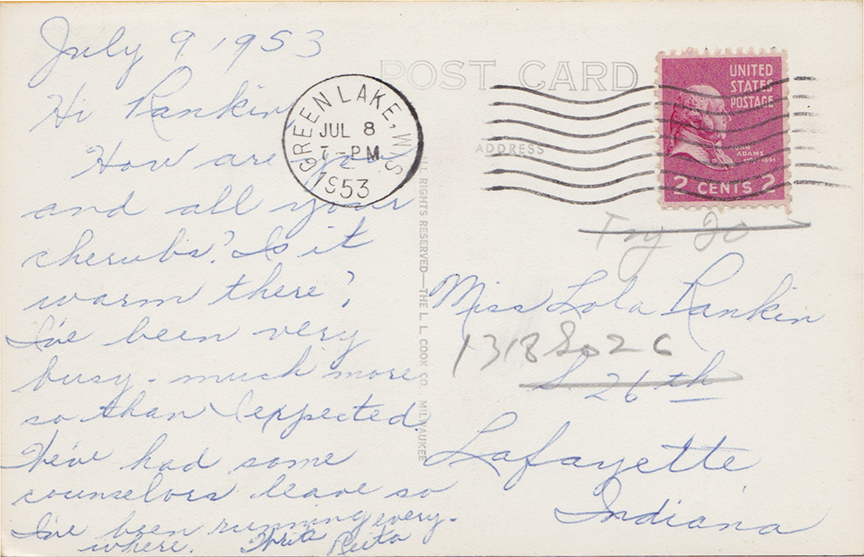 July 9 1953
Hi Rankin
How are you
and all your
cherubs? Is it
warm there?
I've been very
busy - much more
so than I expected.
We've had some
counselors leave so
I've been running every-
where. Write Reita
POST CARD
ADDRESS
ALL RIGHTS RESERVED—THE L. L. COOK CO. MILWAUKEE
GREEN LAKE, WIS.
JUL 8
7-PM
1953
UNITED
STATES
POSTAGE
JOHN
ADAMS
2 CENTS 2
Try 20
Miss Lola Rankin
1318 So 26
S. 26th
Lafayette
Indiana